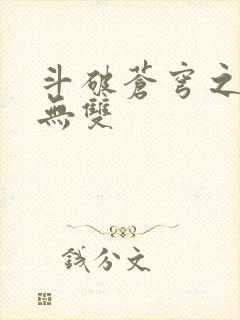 斗破蒼穹之
無雙
錢分文